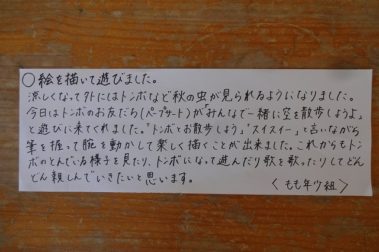 ○絵を描いて遊びました。
涼しくなって外にはトンボなど秋の虫が見られるようになりました。
今日はトンボのお友だち(ペープサート)が「みんなで一緒に空を散歩しようよ」
と遊びに来てくれました。「トンボとお散歩しよう」「スイスイー」と言いながら
筆を握って腕を動かして楽しく描くことが出来ました。これからもトン
ボのとんでいる様子を見たり、トンボになって遊んだり歌を歌ったりしてどん
どん親しんでいきたいと思います。
〈もも年少組〉